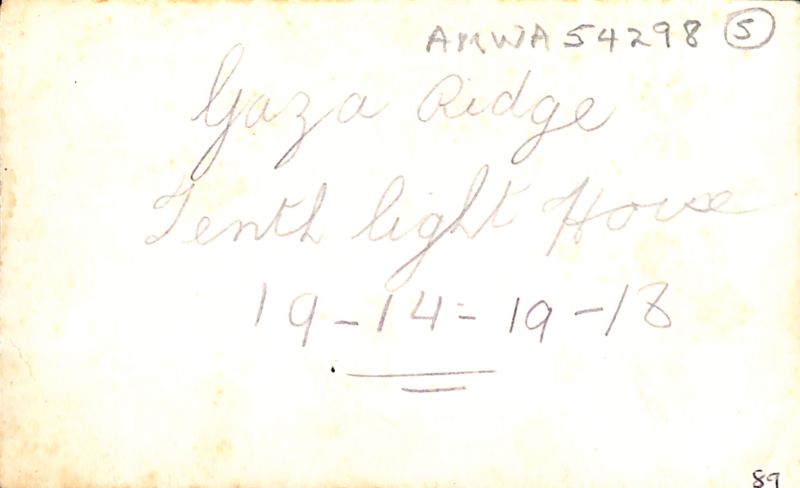 AMWA 54298 (5)
Gaza Ridge
Tenth light Horse
19-14=19-18
89